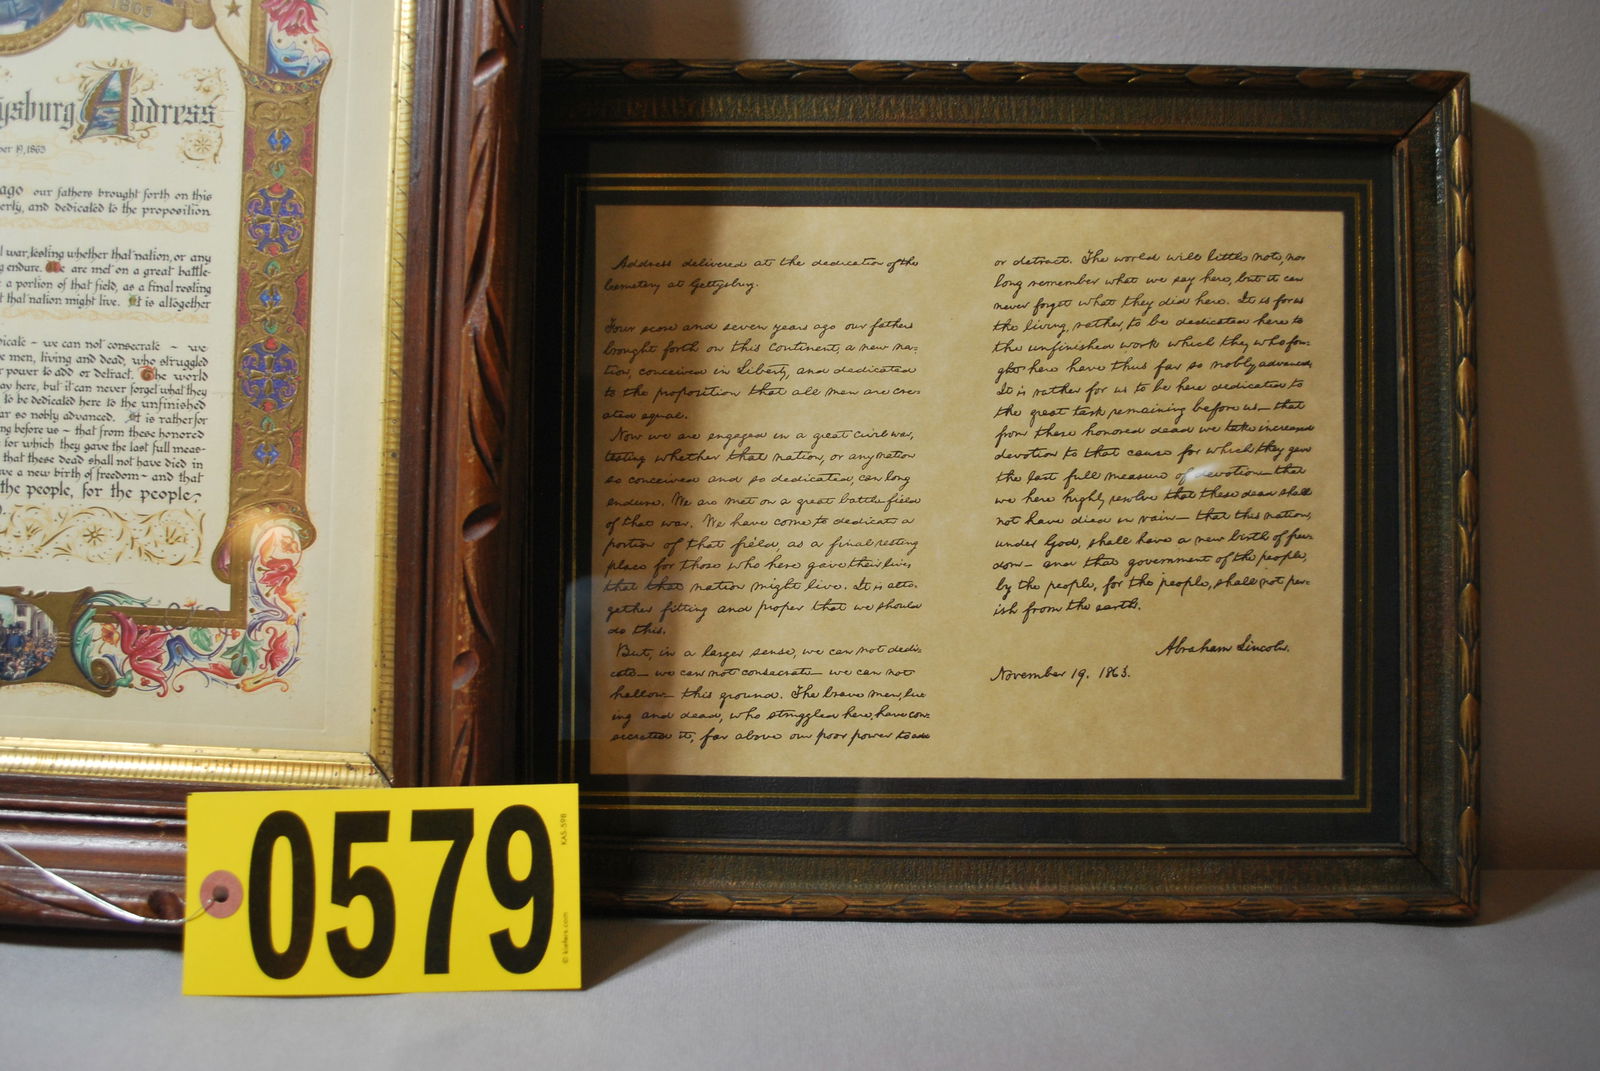 1863
ysburg Address
ber 19, 1863
ago our fathers brought forth on this
erty, and dedicated to the proposition
l war, testing whether that nation, or any
g endure. We are met on a great battle-
a portion of that field, as a final resting
t that nation might live. It is altogether
dicate ~ we can not consecrate ~ we
e men, living and dead, who struggled
r power to add or detract. The world
ay here, but it can never forget what they
to be dedicated here to the unfinished
ar so nobly advanced. It is rather for
ng before us ~ that from these honored
for which they gave the last full meas-
that these dead shall not have died in
ave a new birth of freedom ~ and that
the people, for the people,
Address delivered at the dedication of the
Cemetery at Gettysbug.
Four score and seven years ago our fathers
brought forth on this continent, a new na-
tion, conceived in Liberty, and dedicated
to the proposition that all men are cre-
ated equal.
Now we are engaged in a great civil war,
testing whether that nation, or any nation
so conceived and so dedicated, can long
endure. We are met on a great battle-field
of that war. We have come to dedicate a
portion of that field, as a final resting
place for those who here gave their lives
that that nation might live. It is alto-
gether fitting and proper that we should
do this.
But, in a larger sense, we can not dedi-
cate— we can not consecrate— we can not
hallow— this ground. The brave men, liv-
ing and dead, who struggled here, have con-
secrated it, far above our poor power to add
or detract. The world will little note, nor
long remember what we say here, but it can
never forget what they did here. It is for us
the living, rather, to be dedicated here to
the unfinished work which they who fou-
ght here have thus far so nobly advanced.
It is rather for us to be here dedicated to
the great task remaining before us— that
from these honored dead we take increased
devotion to that cause for which they gave
the last full measure of devotion— that
we here highly resolve that these dead shall
not have died in vain— that this nation,
under God, shall have a new birth of free-
dom— and that government of the people,
by the people, for the people, shall not per-
ish from the earth.
Abraham Lincoln.
November 19, 1863.
0579
KAS-59B
© kiefers.com